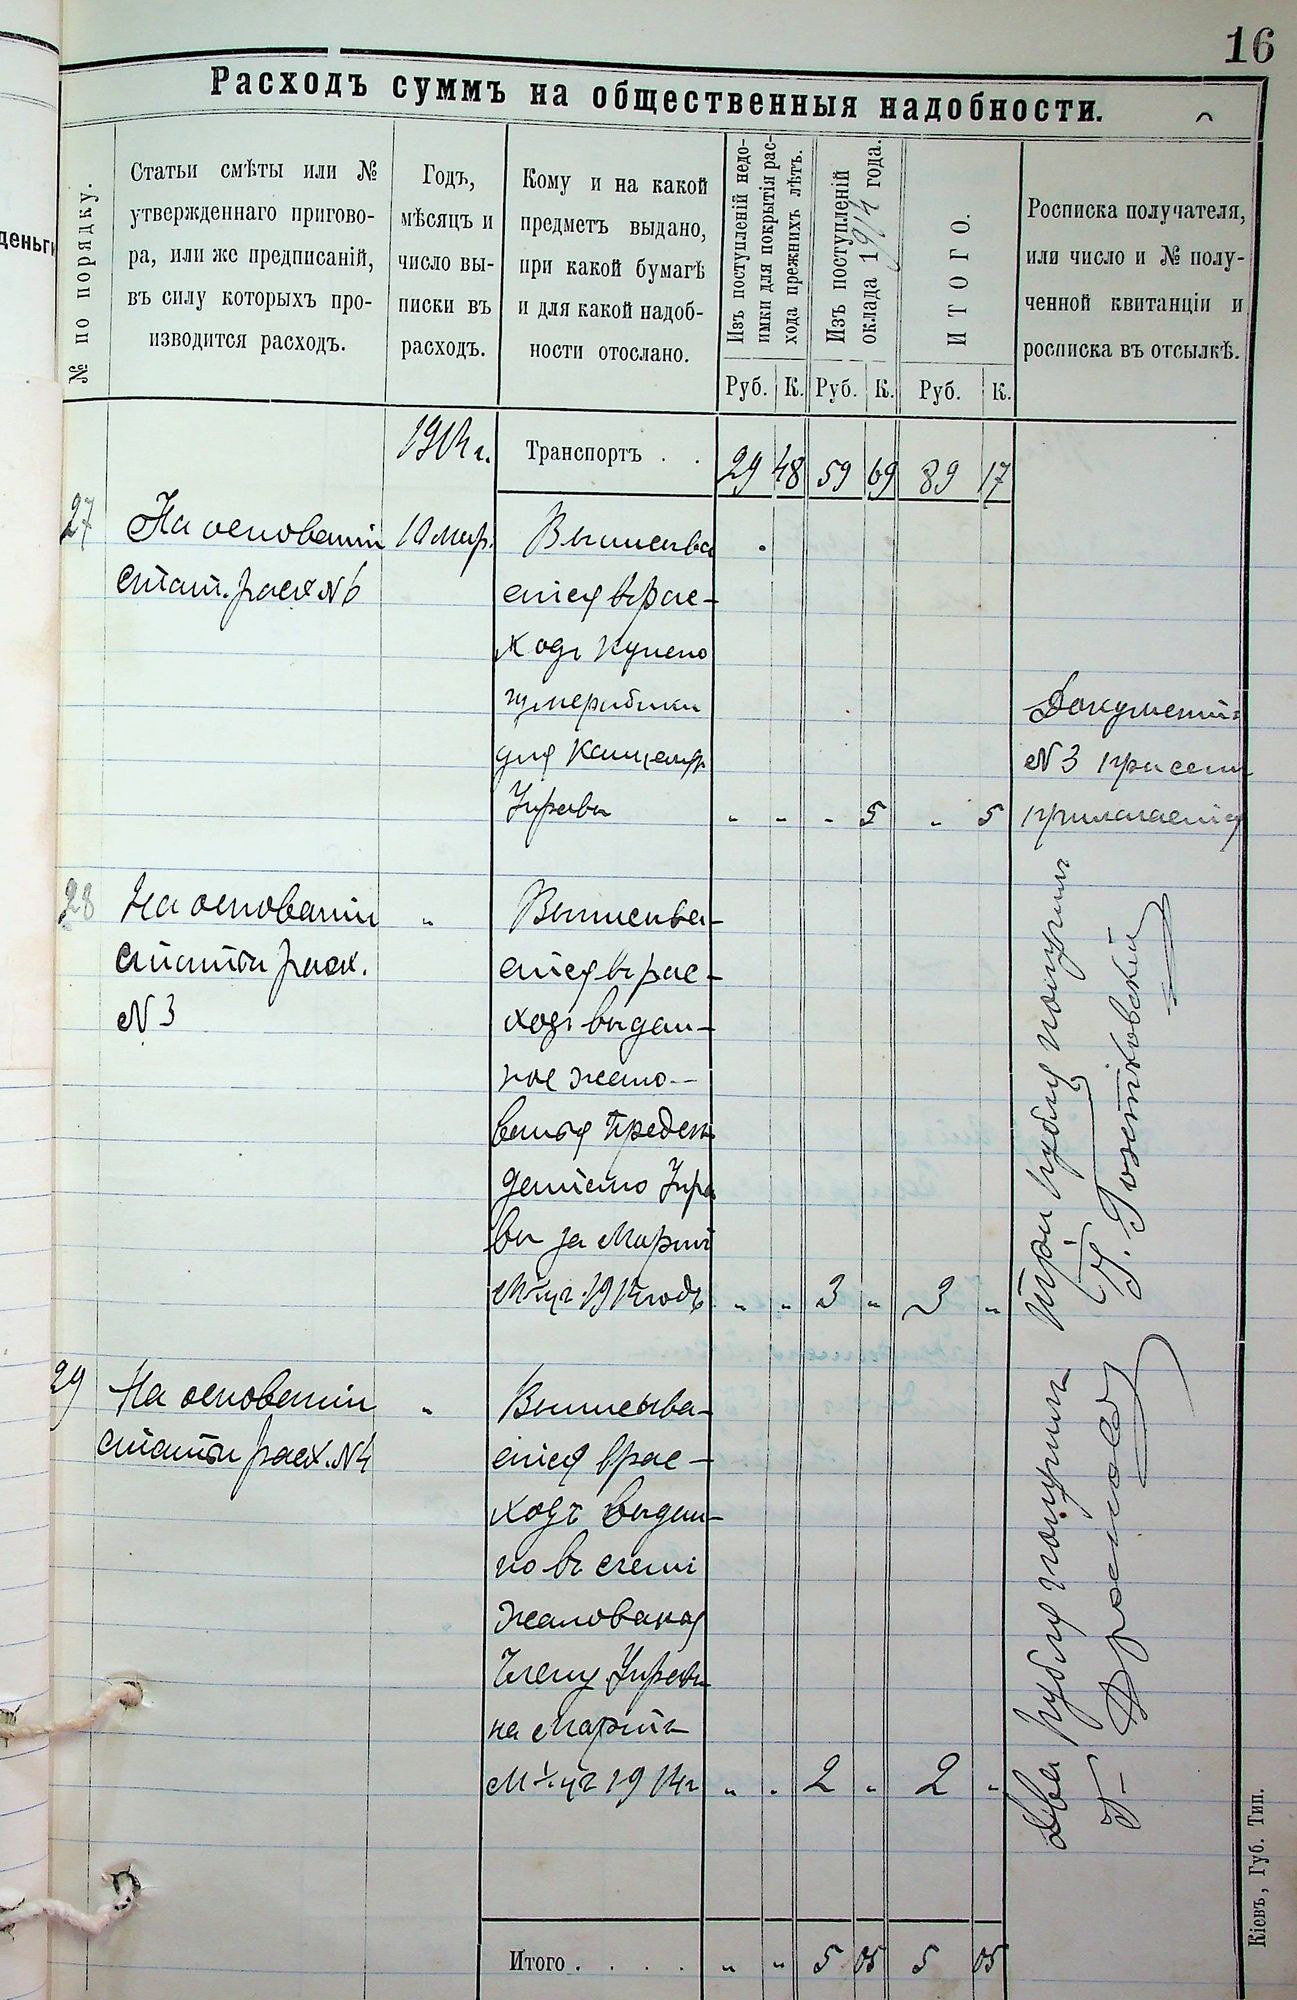 16
Расходъ суммъ на общественныя надобности.
№ по порядку.
Статьи смѣты или №
утвержденнаго пригово-
ра, или же предписаній,
въ силу которыхъ про-
изводится расходъ.
Годъ,
мѣсяцъ и
число вы-
писки въ
расходъ.
Кому и на какой
предметъ выдано,
при какой бумагѣ
и для какой надоб-
ности отослано.
Изъ поступленій недо-
имки для покрытія рас-
хода прежнихъ лѣтъ.
Изъ поступленій
оклада 1914 года.
ИТОГО.
Росписка получателя,
или число и № полу-
ченной квитанціи и
росписка въ отсылкѣ.
Руб. К. Руб. К. Руб. К.
1914 г. Транспортъ . . 29 48 59 69 89 17
27 На основаніи 10 мар. Выписыва
стат. расх № 6 ется въ рас-
ходъ куплено
для Канцеляр
Управы " " " 5 " 5
Документъ
№ 3 при семъ
прилагается
28 На основаніи " Выписыва-
статьи расх. ется въ рас-
№ 3 ходъ выдан-
ное жало-
ванья Предсѣ
дателю Упра
вы за Мартъ
М-цъ 1914 годъ " " 3 " 3 "
Три рубля получилъ
29 На основаніи " Выписыва-
статьи расх. № 4 ется врас-
ходъ выдан-
но въ счетъ
жалованья
Члену Управы
на Мартъ
М-цъ 1914 г " " 2 " 2 "
Два рубля получилъ
Итого . . . . " " 5 05 5 05
Кіевъ, Губ. Тип.
деньги